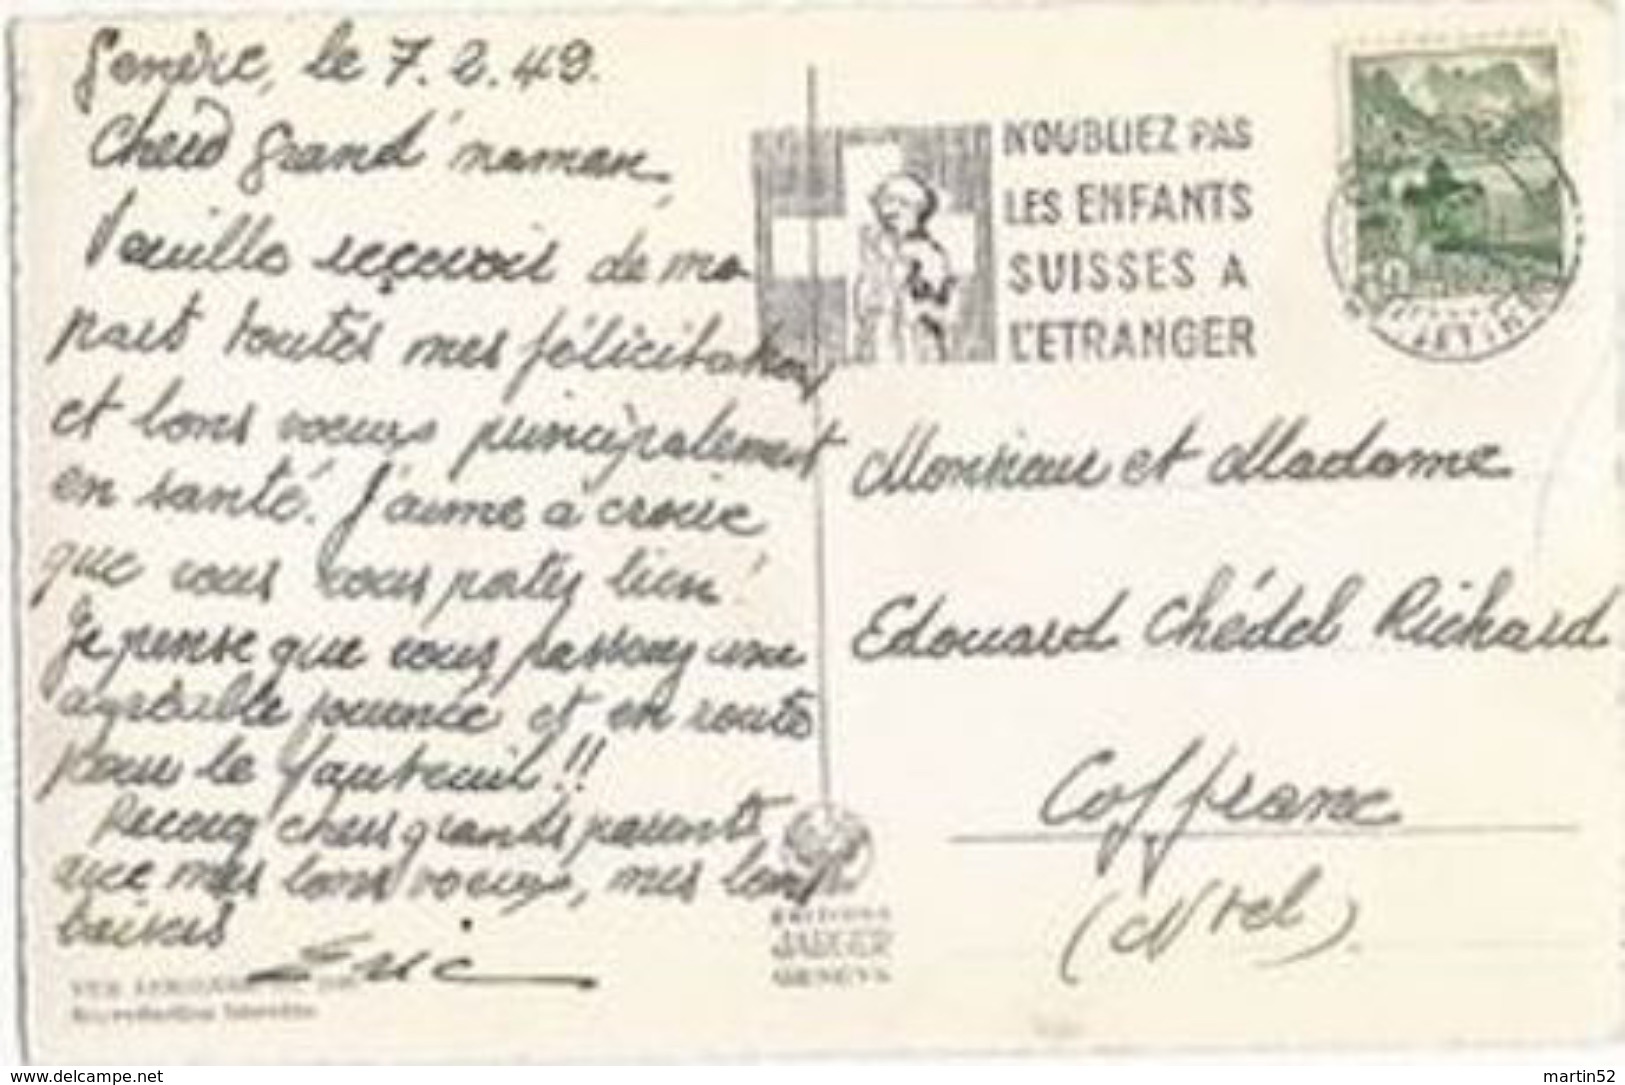 Genève, le 7.2.49.
Chère Grand'maman,
Veuille reçevoir de ma
part toutes mes félicitations
et bons voeux principalement
en santé. J'aime à croire
que vous vous portez bien!
Je pense que vous passerez une
agréable journée et en route
pour le fauteuil!!
Recevez chers grands parents
avec mes bons voeux, mes bons
baisers
Eric
N'OUBLIEZ PAS
LES ENFANTS
SUISSES A
L'ETRANGER
Monsieur et Madame
Edouard Chédel Richard
Coffrane
(Ntel)
EDITIONS
JAEGER
GENEVE
VUE AERIENNE
Reproduction interdite
https://www.delcampe.net
martin52